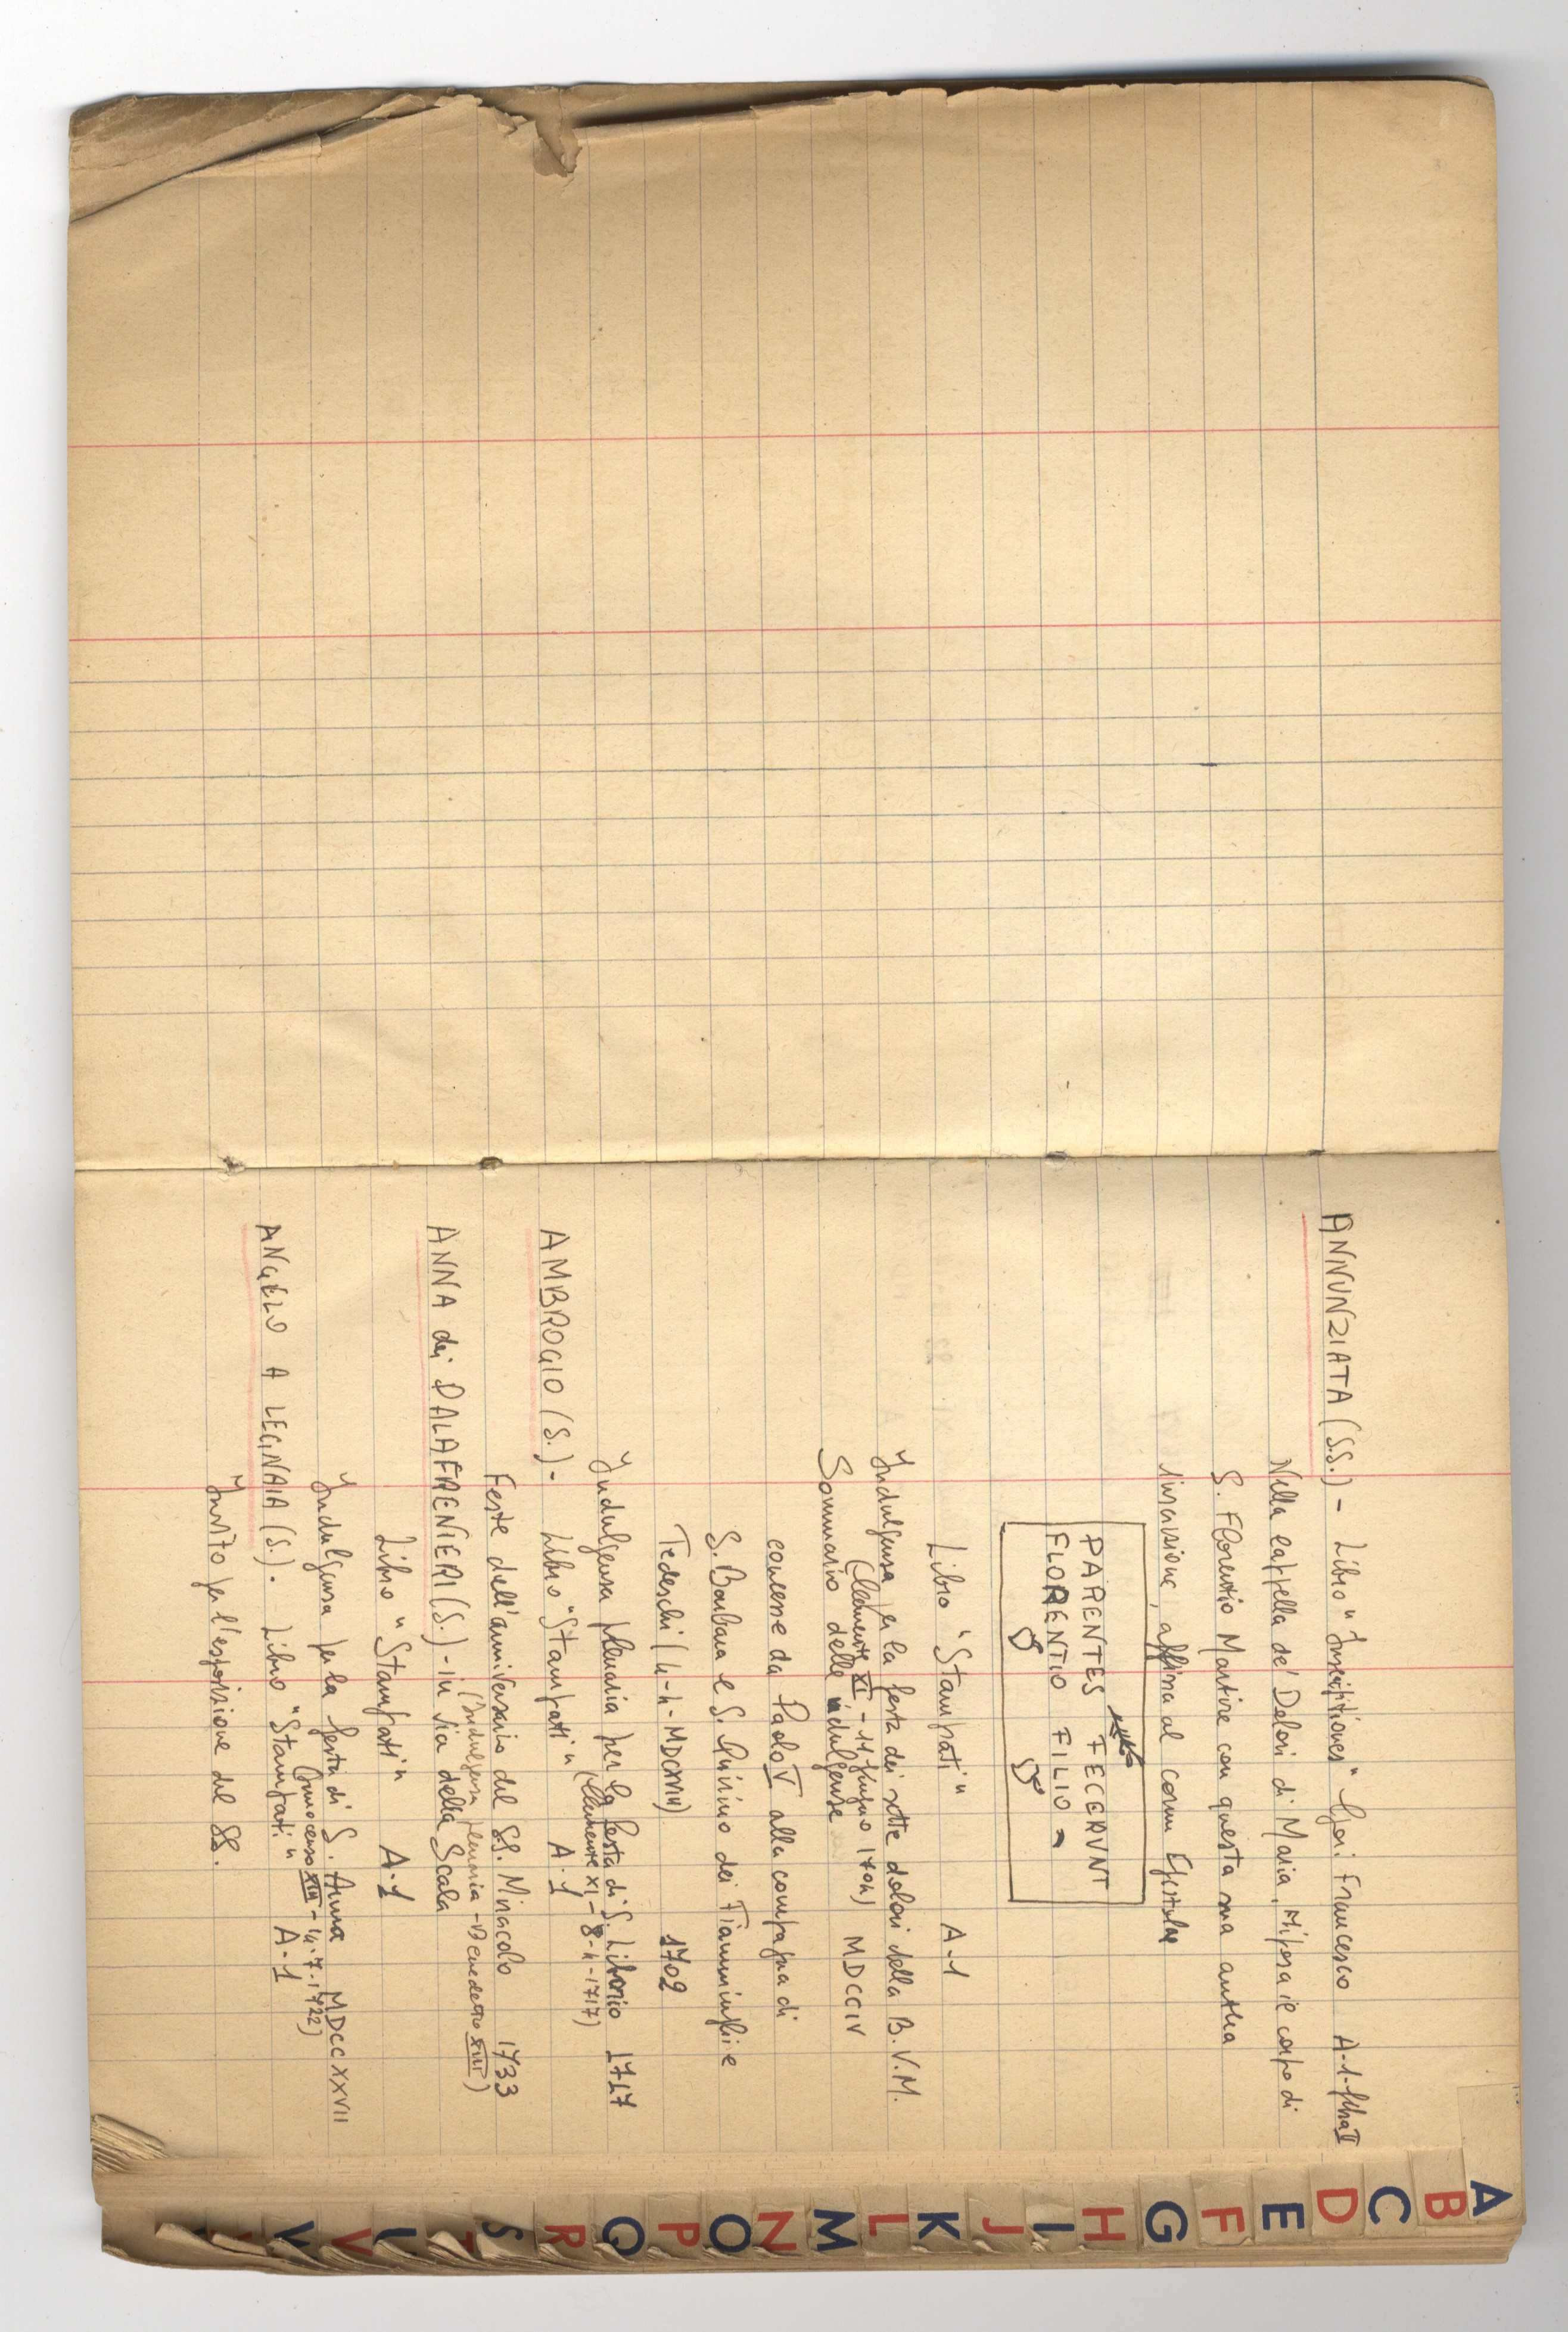 ANNUNZIATA (S.S.) - Libro "Inscriptiones" Gori Francesco A-1-
Nella cappella de' Dolori di Maria, riposa il corpo di
S. Florentio Martire con questa sua antica
iscrizione, affissa al cornu Epistolae
PARENTES FECERVNT
FLORENTIO FILIO
Libro "Stampati" A-1
Indulgenza per la festa dei sette dolori della B.V.M.
(Clemente XI - 11 giugno 1704) MDCCIV
Sommario delle indulgenze
concesse da Paolo V alla compagnia di
S. Barbara e S. Quirino dei Fiamminghi e
Tedeschi (4-4-MDCXVIII) 1702
Indulgenza plenaria per la festa di S. Liborio 1717
(Clemente XI - 8-4-1717)
AMBROGIO (S.) - Libro "Stampati" A-1
Feste dell'anniversario del SS. Miracolo 1733
(Indulgenza plenaria - Benedetto XIII)
ANNA dei PALAFRENIERI (S.) - in Via della Scala
Libro "Stampati" A-1
Indulgenza per la festa di S. Anna MDCCXXVII
(Innocenzo XIII - 14-7-1722)
ANGELO A LEGNAIA (S.) - Libro "Stampati" A-1
Invito per l'esposizione del SS.
A
B
C
D
E
F
G
H
I
J
K
L
M
N
O
P
Q
R
S
V